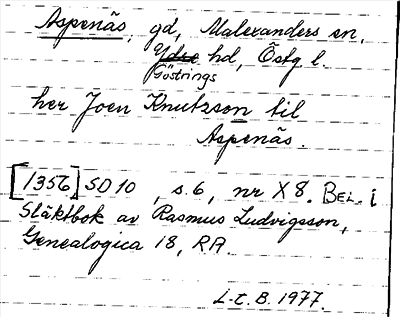 Aspenäs, gd, Malexanders sn,
Ydre hd, Östg l.
Göstrings
her Joen Knutzson til
Aspenäs.
[1356] SD 10, s. 6, nr X 8. BEL. i
Släktbok av Rasmus Ludvigsson,
Genealogica 18, RA.
L-t. B. 1977.